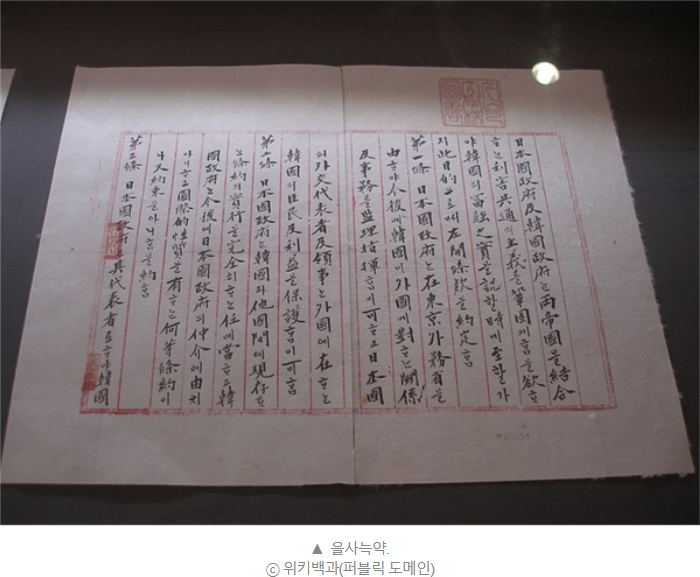 日本國政府及韓國政府는兩帝國을結合
ᄒᆞ는利害共通의主義를鞏固케ᄒᆞᆷ을欲ᄒᆞ
야韓國의富强之實을認ᄒᆞᆯ時에至ᄒᆞᆯ가
지此目的으로써左開條款을約定ᄒᆞᆷ
第一條 日本國政府는在東京外務省을
由ᄒᆞ야今後에韓國이外國에對ᄒᆞ는關係
及事務를監理指揮ᄒᆞᆷ이可ᄒᆞ고日本國
의外交代表者及領事는外國에在ᄒᆞ는
韓國의臣民及利益을保護ᄒᆞᆷ이可ᄒᆞᆷ
第二條 日本國政府는韓國과他國間에現存ᄒᆞ
는條約의實行을完全히ᄒᆞ는任에當ᄒᆞ고韓
國政府는今後에日本國政府의仲介에由치
아니ᄒᆞ고國際的性質을有ᄒᆞ는何等條約이
나又約束을아니ᄒᆞᆷ을約ᄒᆞᆷ
第三條 日本國政府는其代表者로ᄒᆞ야韓國
▲ 을사늑약.
ⓒ 위키백과(퍼블릭 도메인)